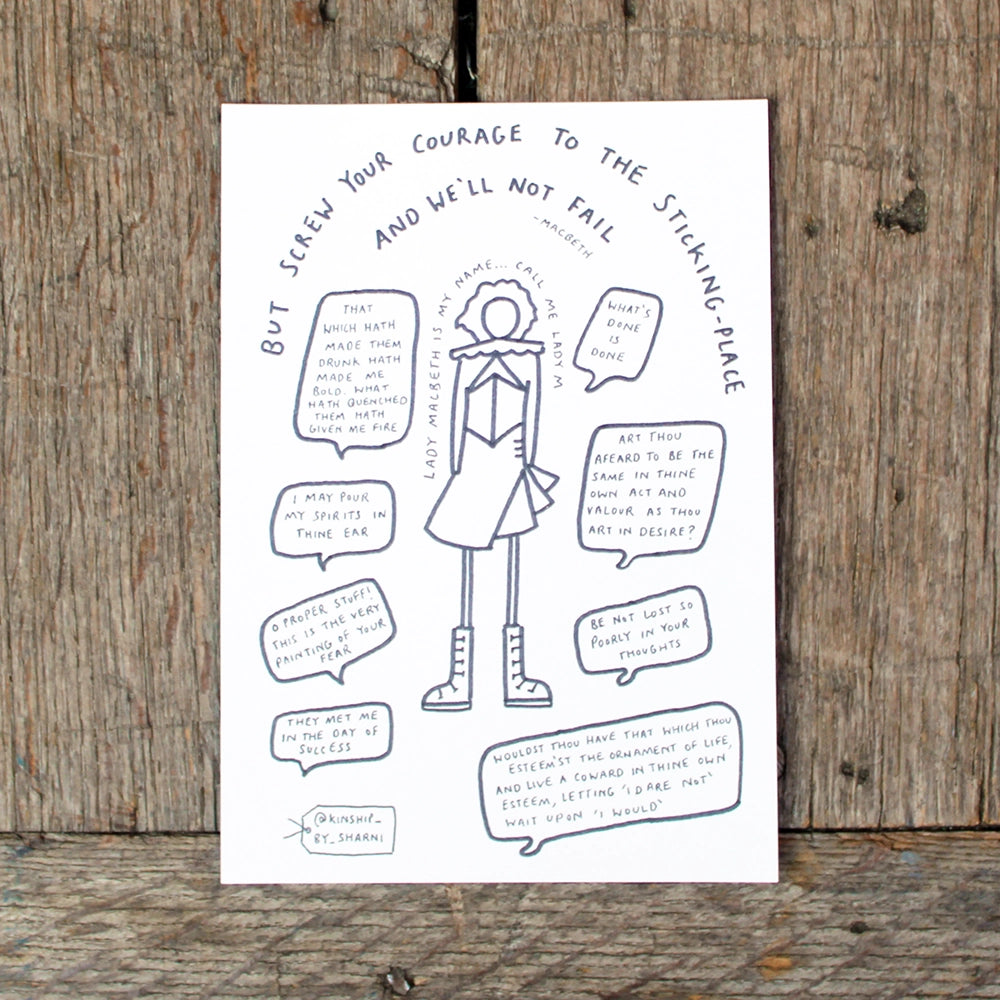 BUT SCREW YOUR COURAGE TO THE STICKING-PLACE
AND WE'LL NOT FAIL
-MACBETH
LADY MACBETH IS MY NAME... CALL ME LADY M
THAT
WHICH HATH
MADE THEM
DRUNK HATH
MADE ME
BOLD. WHAT
HATH QUENCHED
THEM HATH
GIVEN ME FIRE
WHAT'S
DONE
IS
DONE
I MAY POUR
MY SPIRITS IN
THINE EAR
ART THOU
AFEARD TO BE THE
SAME IN THINE
OWN ACT AND
VALOUR AS THOU
ART IN DESIRE?
O PROPER STUFF!
THIS IS THE VERY
PAINTING OF YOUR
FEAR
BE NOT LOST SO
POORLY IN YOUR
THOUGHTS
THEY MET ME
IN THE DAY OF
SUCCESS
WOULDST THOU HAVE THAT WHICH THOU
ESTEEM'ST THE ORNAMENT OF LIFE,
AND LIVE A COWARD IN THINE OWN
ESTEEM, LETTING 'I DARE NOT'
WAIT UPON 'I WOULD'
@KINSHIP_
BY_SHARNI